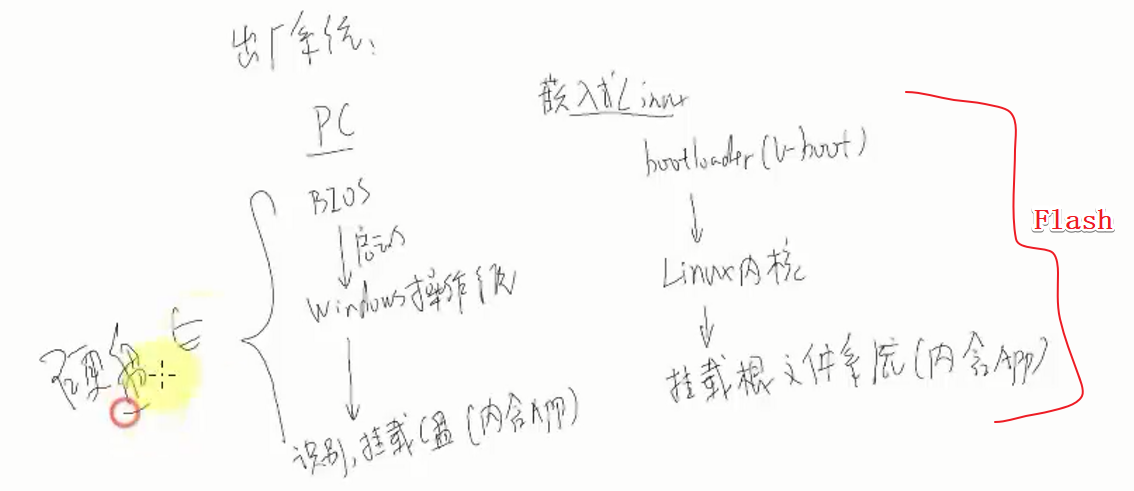 出厂系统：
PC
BIOS
启动
Windows操作系统
识别，挂载C盘（内含APP）
硬盘上
嵌入式Linux
bootloader(U-boot)
Linux内核
挂载根文件系统（内含App）
Flash